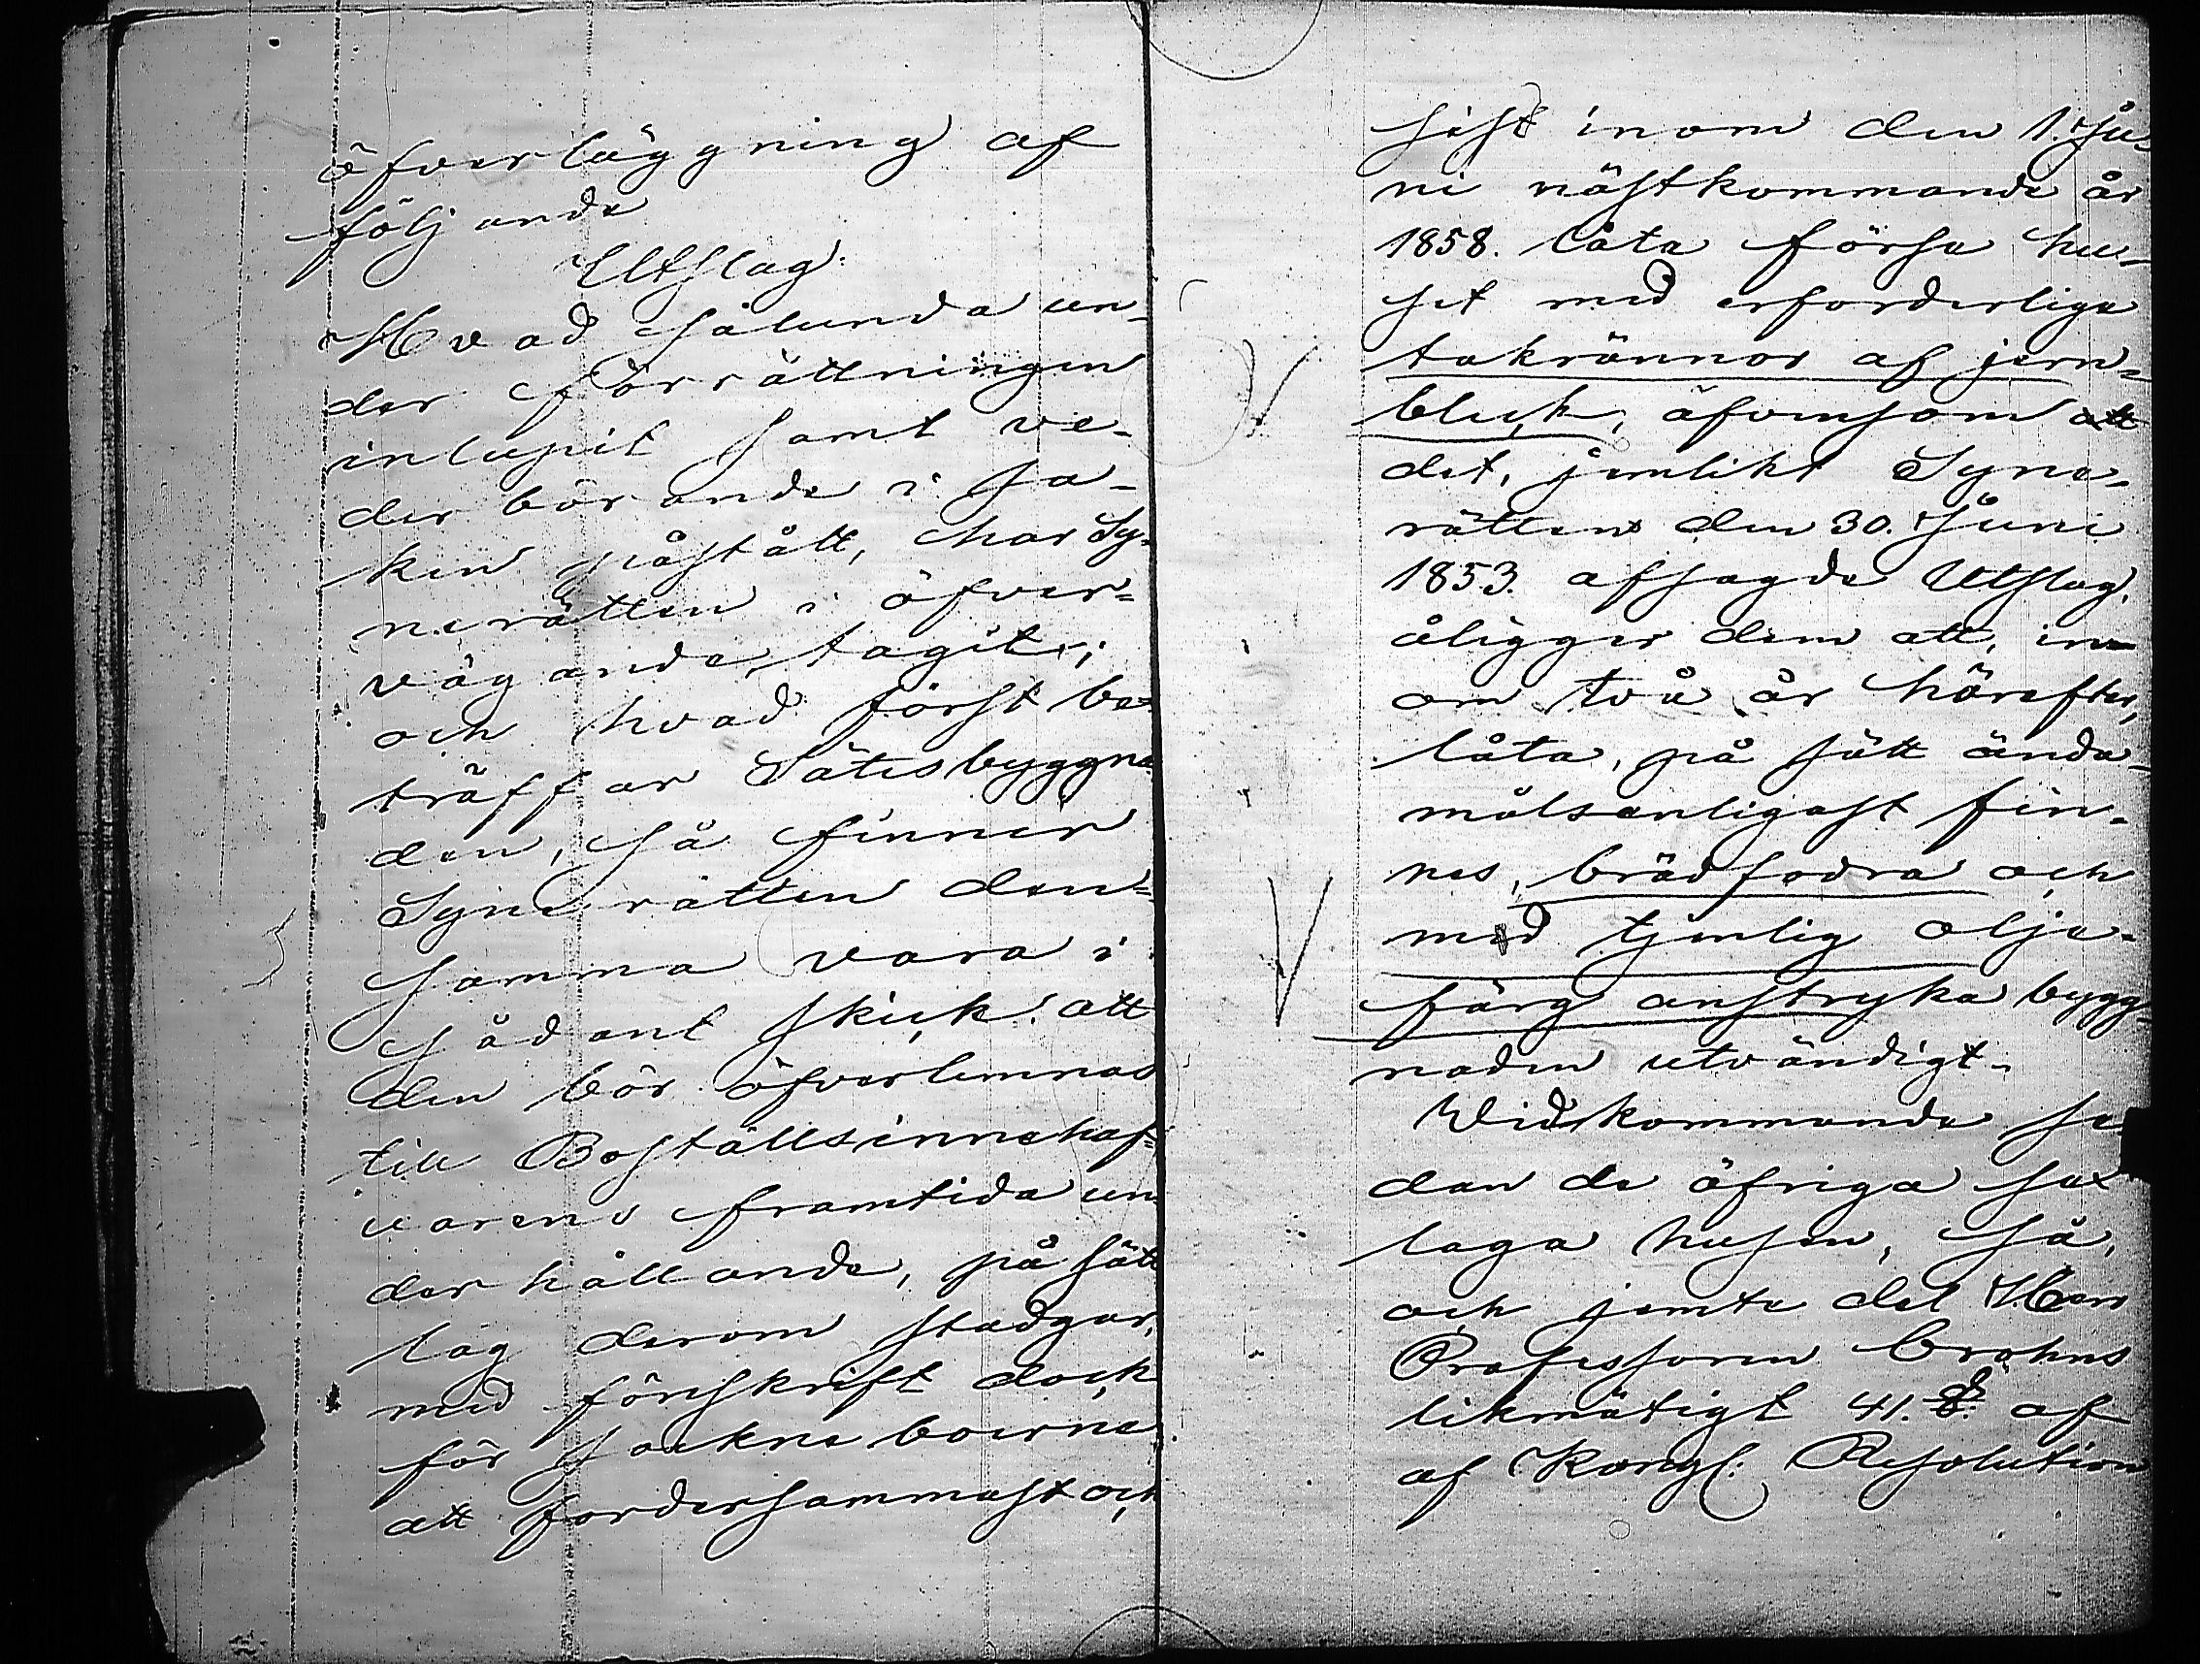 öfverläggning af
följande
Utslag:
Hvad sålunda un-
der förrättningen
inlupit samt ve-
der börande i sa-
ken påstått, har Sy-
nerätten i öfver-
vägande tagit;
och hvad först be-
träffar Sätesbyggna-
den, så finner
Synerätten den-
samma vara i
sådant skick att
den bör öfverlemnas
till Boställsinnehaf-
varens framtida un-
derhållande, på sätt
lag derom stadgar,
med föreskrift dock
för sockneboerne
att fordersammast och
sist inom den 1. Ju-
ni nästkommande år
1858. låta förse hu-
set med erforderliga
takrännor af jern-
bleck, äfvensom att
det, jemlikt Syne-
rättens den 30. Juni
1853. afsagde Utslag,
åligger dem att, in-
om två år härefter,
låta, på sätt ända-
målsenligast fin-
nes, brädfodra och
med tjenlig olje-
färg anstryka bygg-
naden utvändigt.
Vidkommande se-
dan de öfriga sat
laga husen, så,
och jemte det Herr
Professoren Grahns
likmätigt 41. §. af
af Kongl: Resolution